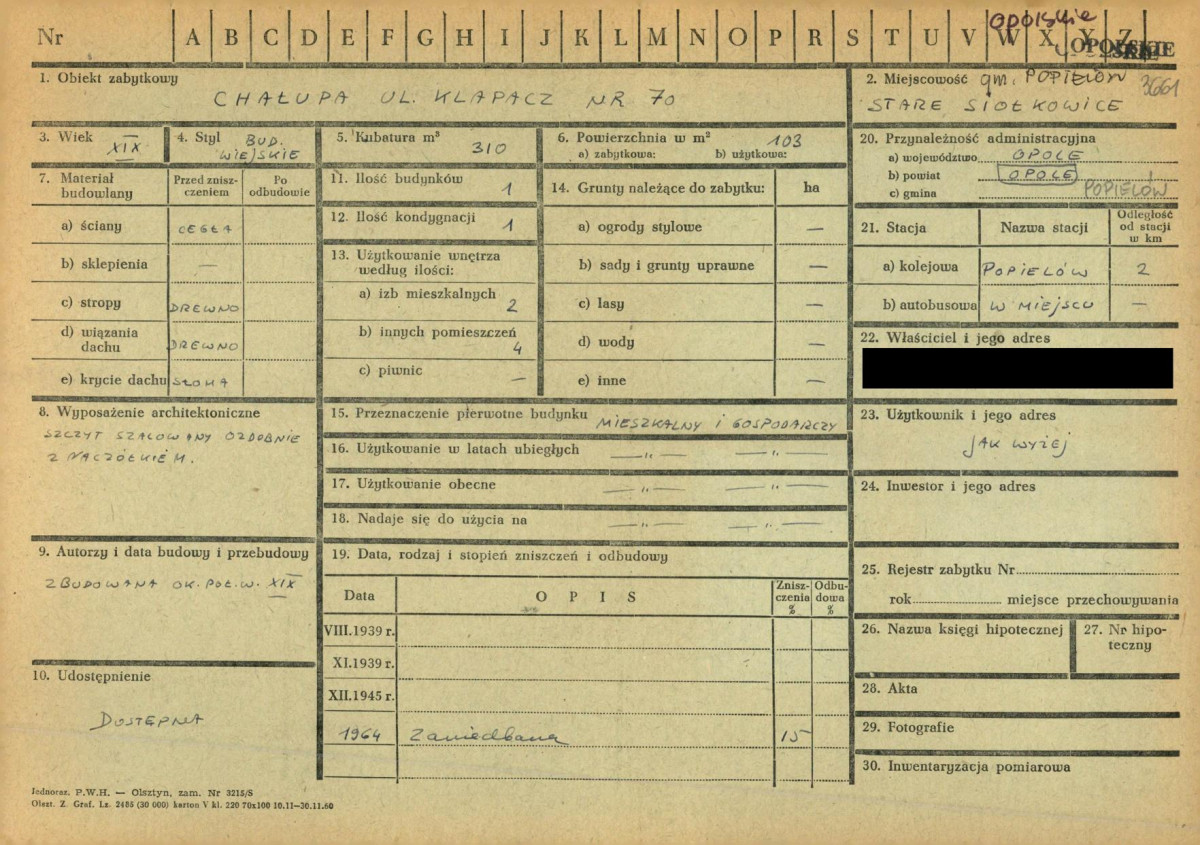 Nr A B C D E F G H I J K L M N O P R S T U V W X Y Z
OPOLSKIE
OPOLSKIE
1. Obiekt zabytkowy
CHAŁUPA UL. KLAPACZ NR 70
2. Miejscowość gm. POPIELÓW 3661
STARE SIOŁKOWICE
3. Wiek XIX
4. Styl BUD. WIEJSKIE
5. Kubatura m³ 310
6. Powierzchnia w m² 103
a) zabytkowa: b) użytkowa:
7. Materiał budowlany
Przed zniszczeniem
Po odbudowie
a) ściany CEGŁA
b) sklepienia —
c) stropy DREWNO
d) wiązania dachu DREWNO
e) krycie dachu SŁOMA
8. Wyposażenie architektoniczne
SZCZYT SZALOWANY OZDOBNIE
Z NACZÓŁKIEM.
9. Autorzy i data budowy i przebudowy
ZBUDOWANA OK. POŁ. W. XIX
10. Udostępnienie
DOSTĘPNA
11. Ilość budynków 1
12. Ilość kondygnacji 1
13. Użytkowanie wnętrza według ilości:
a) izb mieszkalnych 2
b) innych pomieszczeń 4
c) piwnic —
14. Grunty należące do zabytku: ha
a) ogrody stylowe —
b) sady i grunty uprawne —
c) lasy —
d) wody —
e) inne —
15. Przeznaczenie pierwotne budynku MIESZKALNY I GOSPODARCZY
16. Użytkowanie w latach ubiegłych — „ — — „ —
17. Użytkowanie obecne — „ — — „ —
18. Nadaje się do użycia na — „ — — „ —
19. Data, rodzaj i stopień zniszczeń i odbudowy
Data OPIS Zniszczenia % Odbudowa %
VIII.1939 r.
XI.1939 r.
XII.1945 r.
1964 Zaniedbana 15
20. Przynależność administracyjna
a) województwo OPOLE
b) powiat OPOLE
c) gmina POPIELÓW
21. Stacja Nazwa stacji Odległość od stacji w km
a) kolejowa POPIELÓW 2
b) autobusowa W MIEJSCU —
22. Właściciel i jego adres
23. Użytkownik i jego adres
JAK WYŻEJ
24. Inwestor i jego adres
25. Rejestr zabytku Nr
rok miejsce przechowywania
26. Nazwa księgi hipotecznej
27. Nr hipoteczny
28. Akta
29. Fotografie
30. Inwentaryzacja pomiarowa
Jednoraz. P.W.H. — Olsztyn, zam. Nr 3215/S
Olszt. Z. Graf. Lz. 2485 (30 000) karton V kl. 220 70x100 10.11—30.11.60